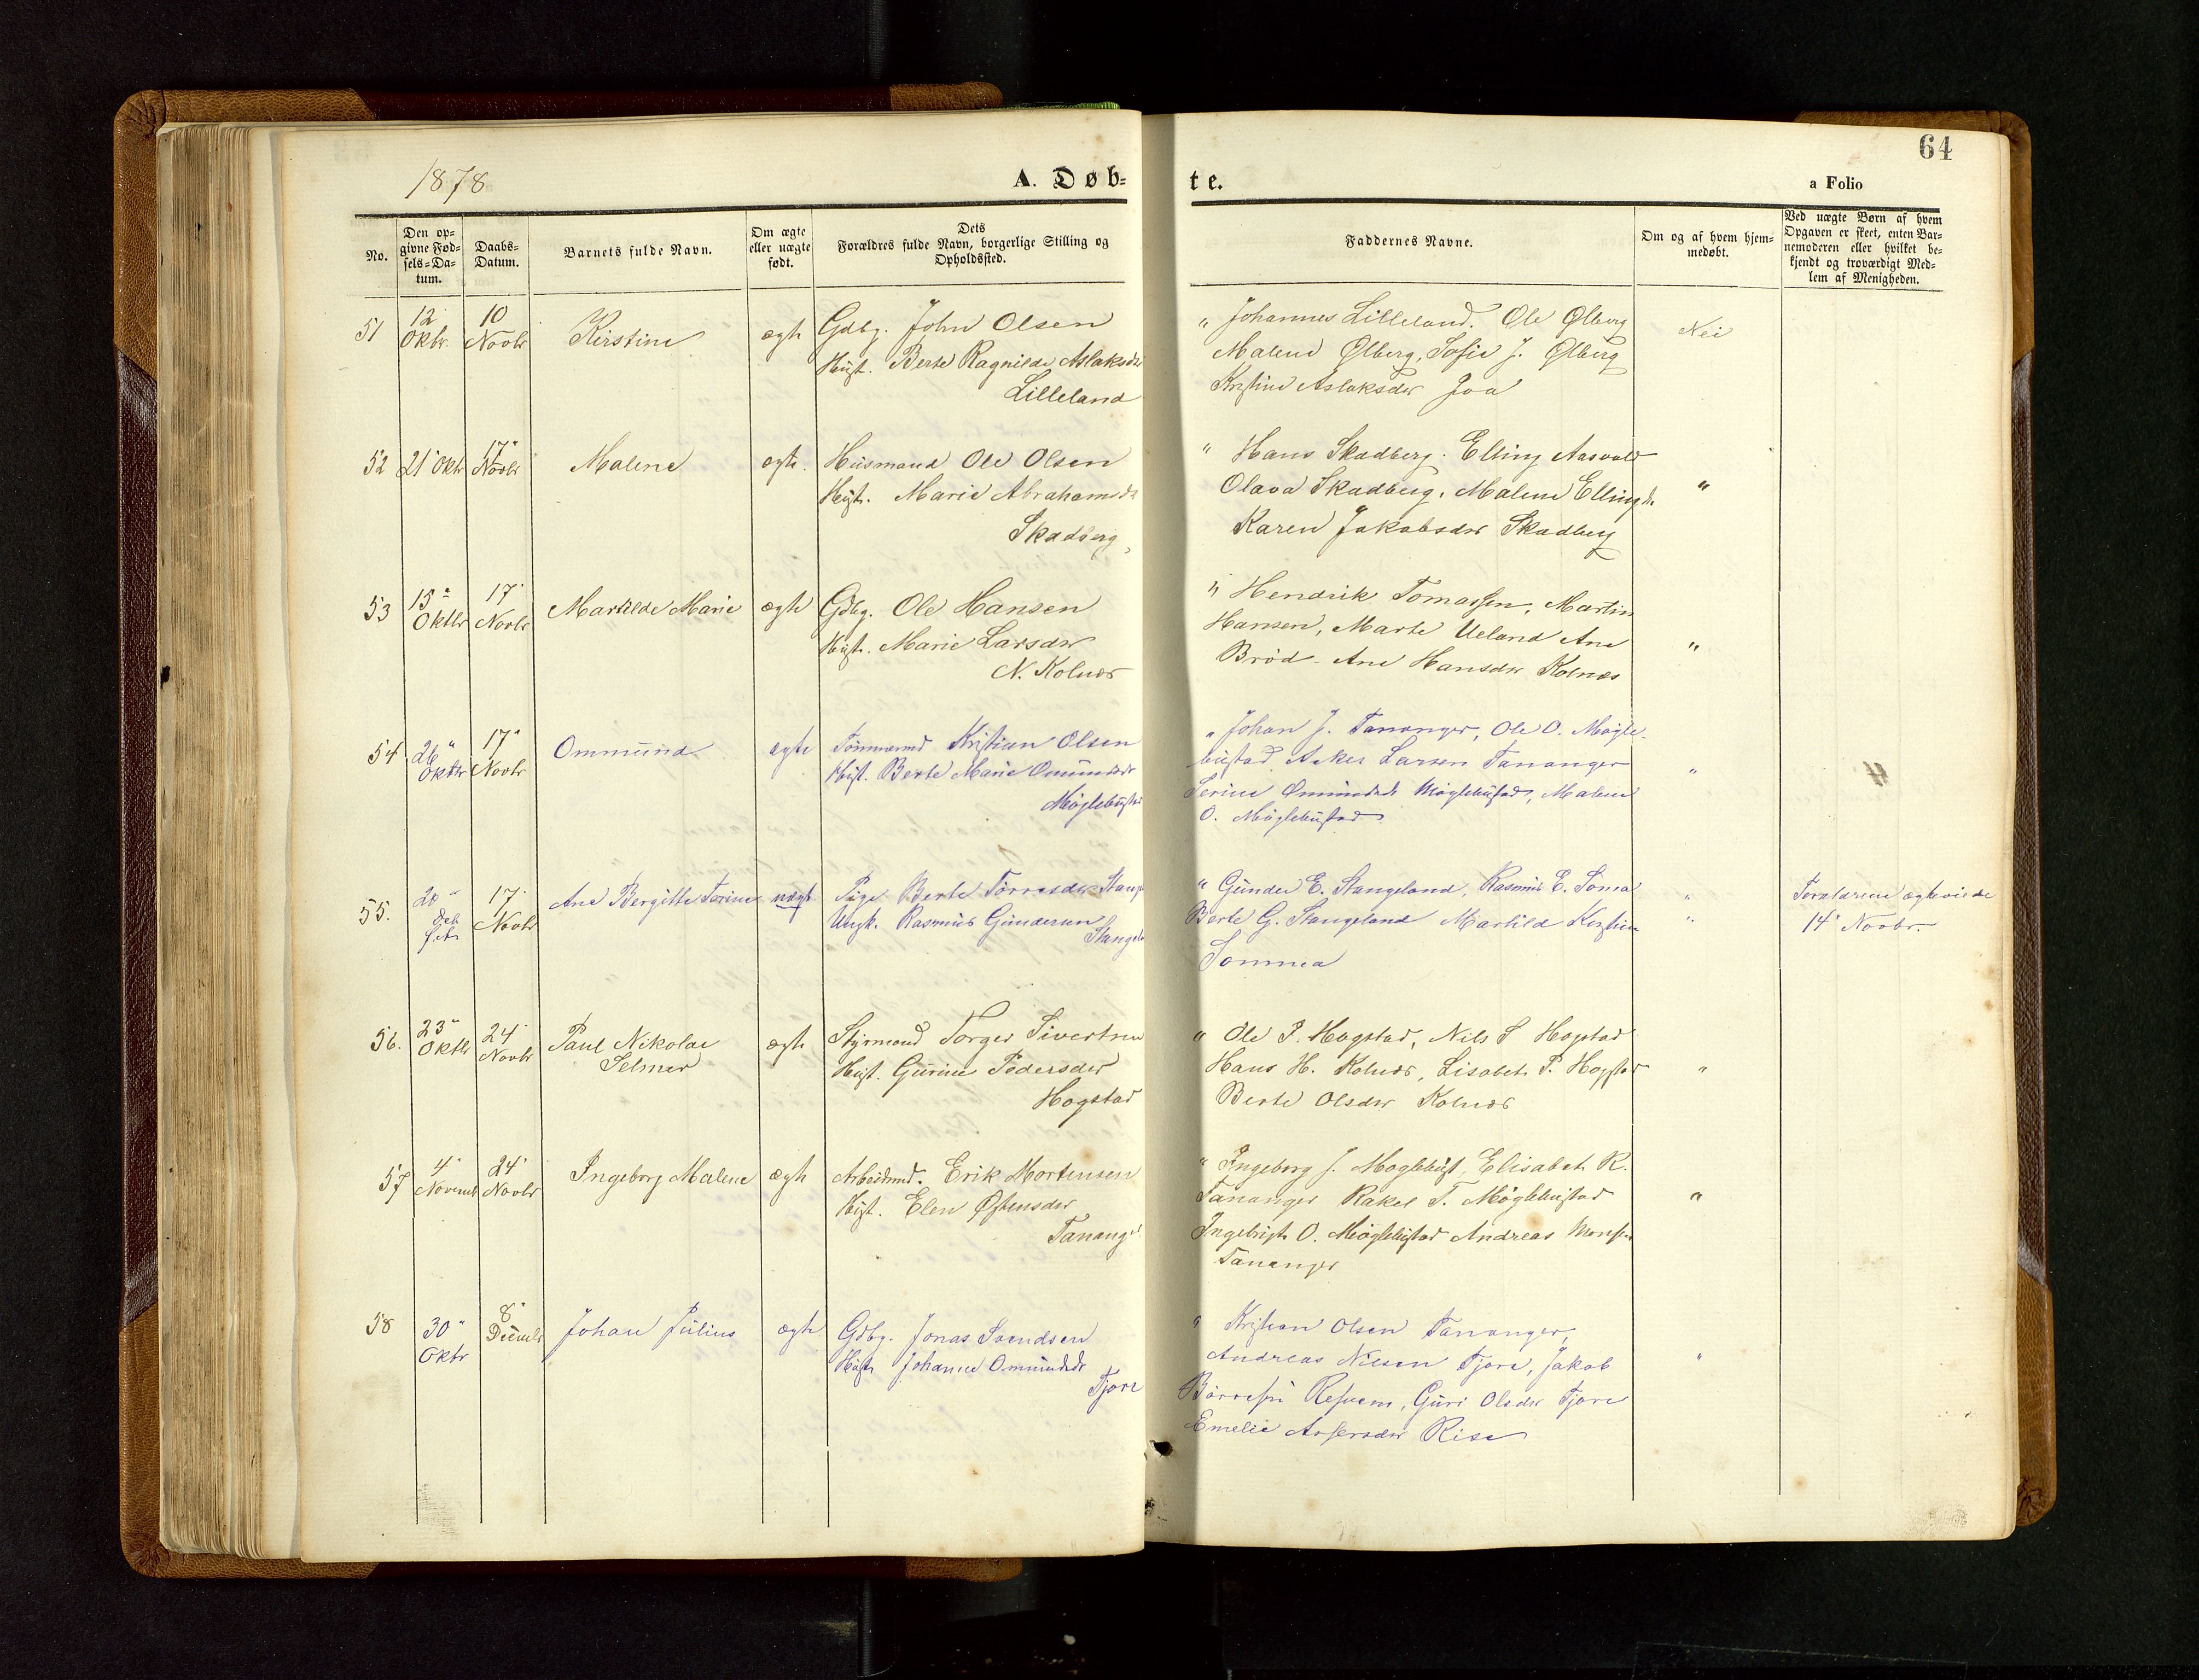 64
1878
A. Døb=
te.
a Folio
No.
Den op=
givne Fød=
sels=Da=
tum.
Daabs=
Datum.
Barnets fulde Navn.
Om ægte
eller uægte
født.
Dets
Forældres fulde Navn, borgerlige Stilling og
Opholdssted.
Faddernes Navne.
Om og af hvem hjem=
medøbt.
Ved uægte Børn af hvem
Opgaven er skeet, enten Bar=
nemoderen eller hvilket be=
kjendt og troværdigt Med=
lem af Menigheden.
51
12
Oktbr.
10
Novbr
Kirstine
ægte
Gdbg. John Olsen
Hust. Berte Ragnilde Aslaksdr
Lilleland
" Johannes Lilleland. Ole Ølberg
Malene Ølberg, Sofie J. Ølberg
Kristine Aslaksdr Joa
Nei
52
21" Oktr
17"
Novbr
Malene
ægte.
Husmand Ole Olsen
Hust. Marie Abrahamsdr
Skadberg,
" Hans Skadberg. Elling Aasvold
Olava Skadberg, Malene Ellingdr
Karen Jakobsdr Skadberg
"
53
15"
Oktbr
17"
Novbr
Martilde Marie
ægte
Gdbg. Ole Hansen
Hust. Marie Larsdr
N. Kolnes
" Hendrik Tomassen, Martin
Hansen, Marte Ueland Ane
Brød. Ane Hansdr Kolnes
"
54
26"
Oktbr
17"
Novbr
Ommund
ægte
Tømmermd Kristian Olsen
Hust. Berte Marie Omundsdr
Møglebustad
" Johan J. Tananger, Ole O. Møgle-
bustad Asker Larsen Tananger
Serine Omundsdr Møglebustad, Malene
O. Møglebustad
"
55.
20"
17"
Novbr
Ane Bergitte Torine
uægt.
Pige Berte Torresdr Stangel
Ungk. Rasmus Gundersen
Stangela
" Gunder E. Stangeland, Rasmus E. Soma
Berte G. Stangeland Martild Kristine
Somma
"
"
Forældrene ægteviede
14" Novbr.
56.
23"
Oktbr
24"
Novbr
Paul Nikolai
Selmer
ægte
Styrmand Torger Sivertsen
Hust. Gurine Pedersdr
Hogstad
" Ole P. Hogstad, Nils S Hogstad
Hans H. Kolnes, Lisabet P. Hogstad
Berte Olsdr Kolnes
"
57
4"
Novembr
24"
Novbr
Ingeborg Malene
ægte
Arbeidsmd. Erik Mortensen
Hust. Elen Østensdr
Tanang
" Ingeborg J. Moglebust, Elisabet R.
Tananger Rakel T. Møglebustad
Ingebrigt O. Møglebustad Andreas Monsen
Tananger
"
58
30"
Oktbr
8"
Decembr
Johan Julius
ægte
Gdbg. Jonas Svendsen
Hust Johanne Omundsdr
Tjore
" Kristian Olsen Tananger,
Andreas Nilsen Tjore, Jakob
Resvem, Guri Olsdr Tjore
Emelie Risa
"